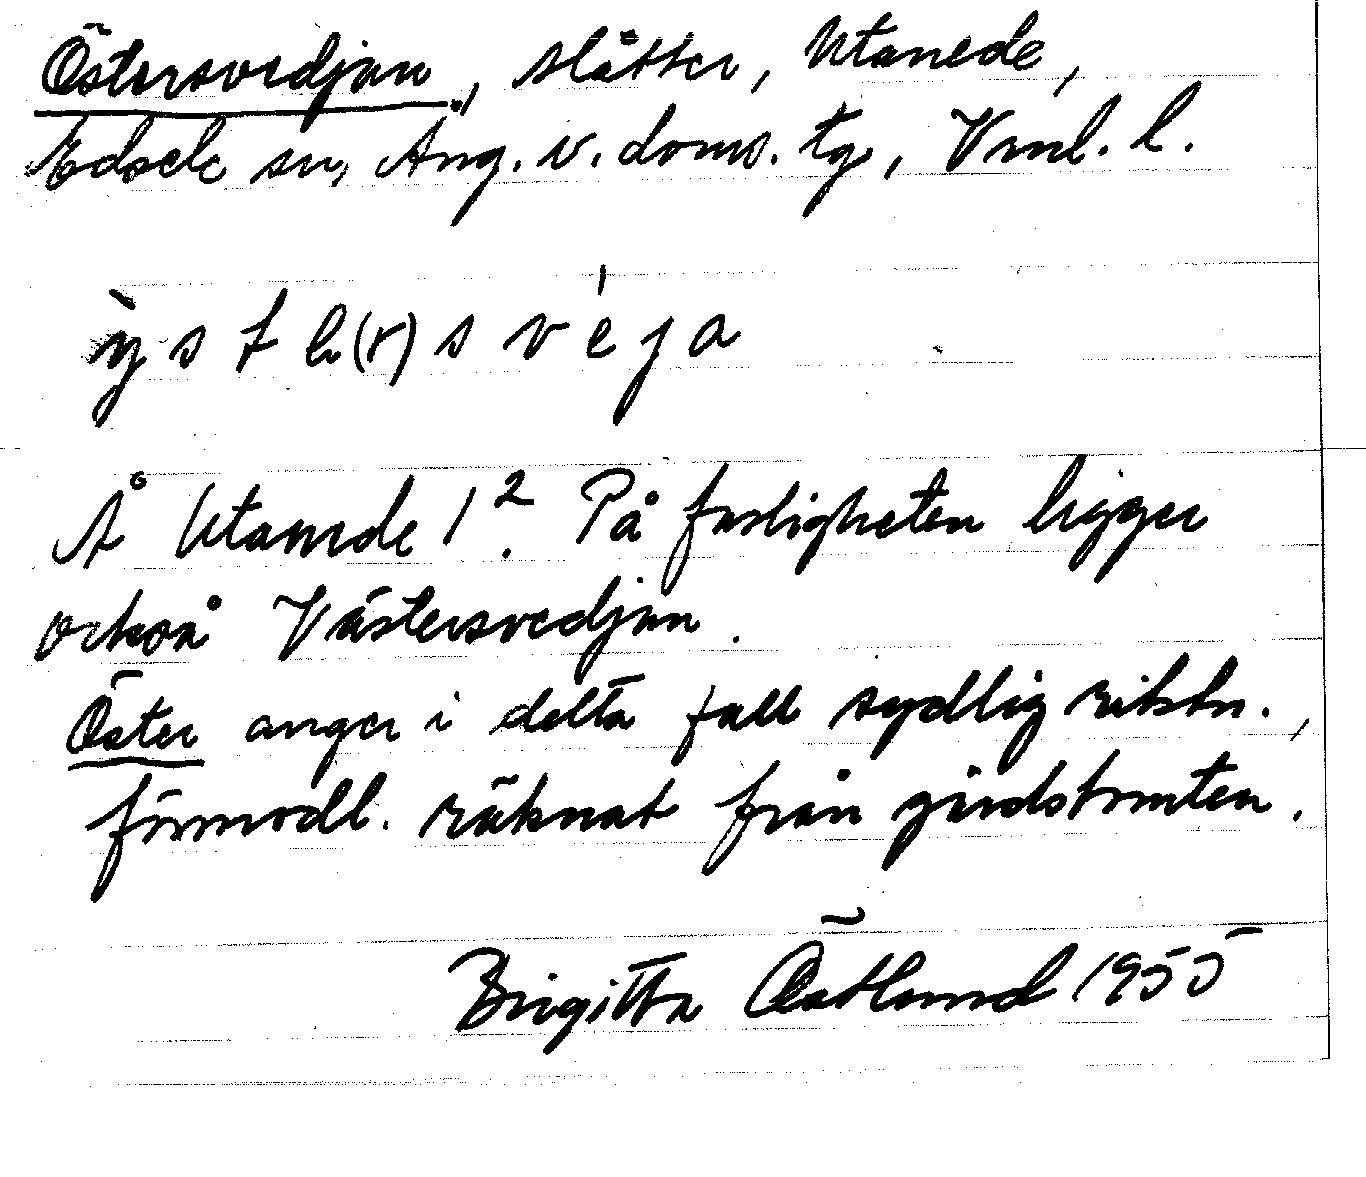 Östersvedjan, slåtter, Utanede,
Edsele sn, Ång. v. doms. tg, Vnl. l.
ỳ s t e(r) s v é j a
Å Utanede 1². På fastigheten ligger
också Västersvedjan.
Öster anger i detta fall sydlig riktn.,
förmodl. räknat från gårdstomten.
Birgitta Östlund 1955